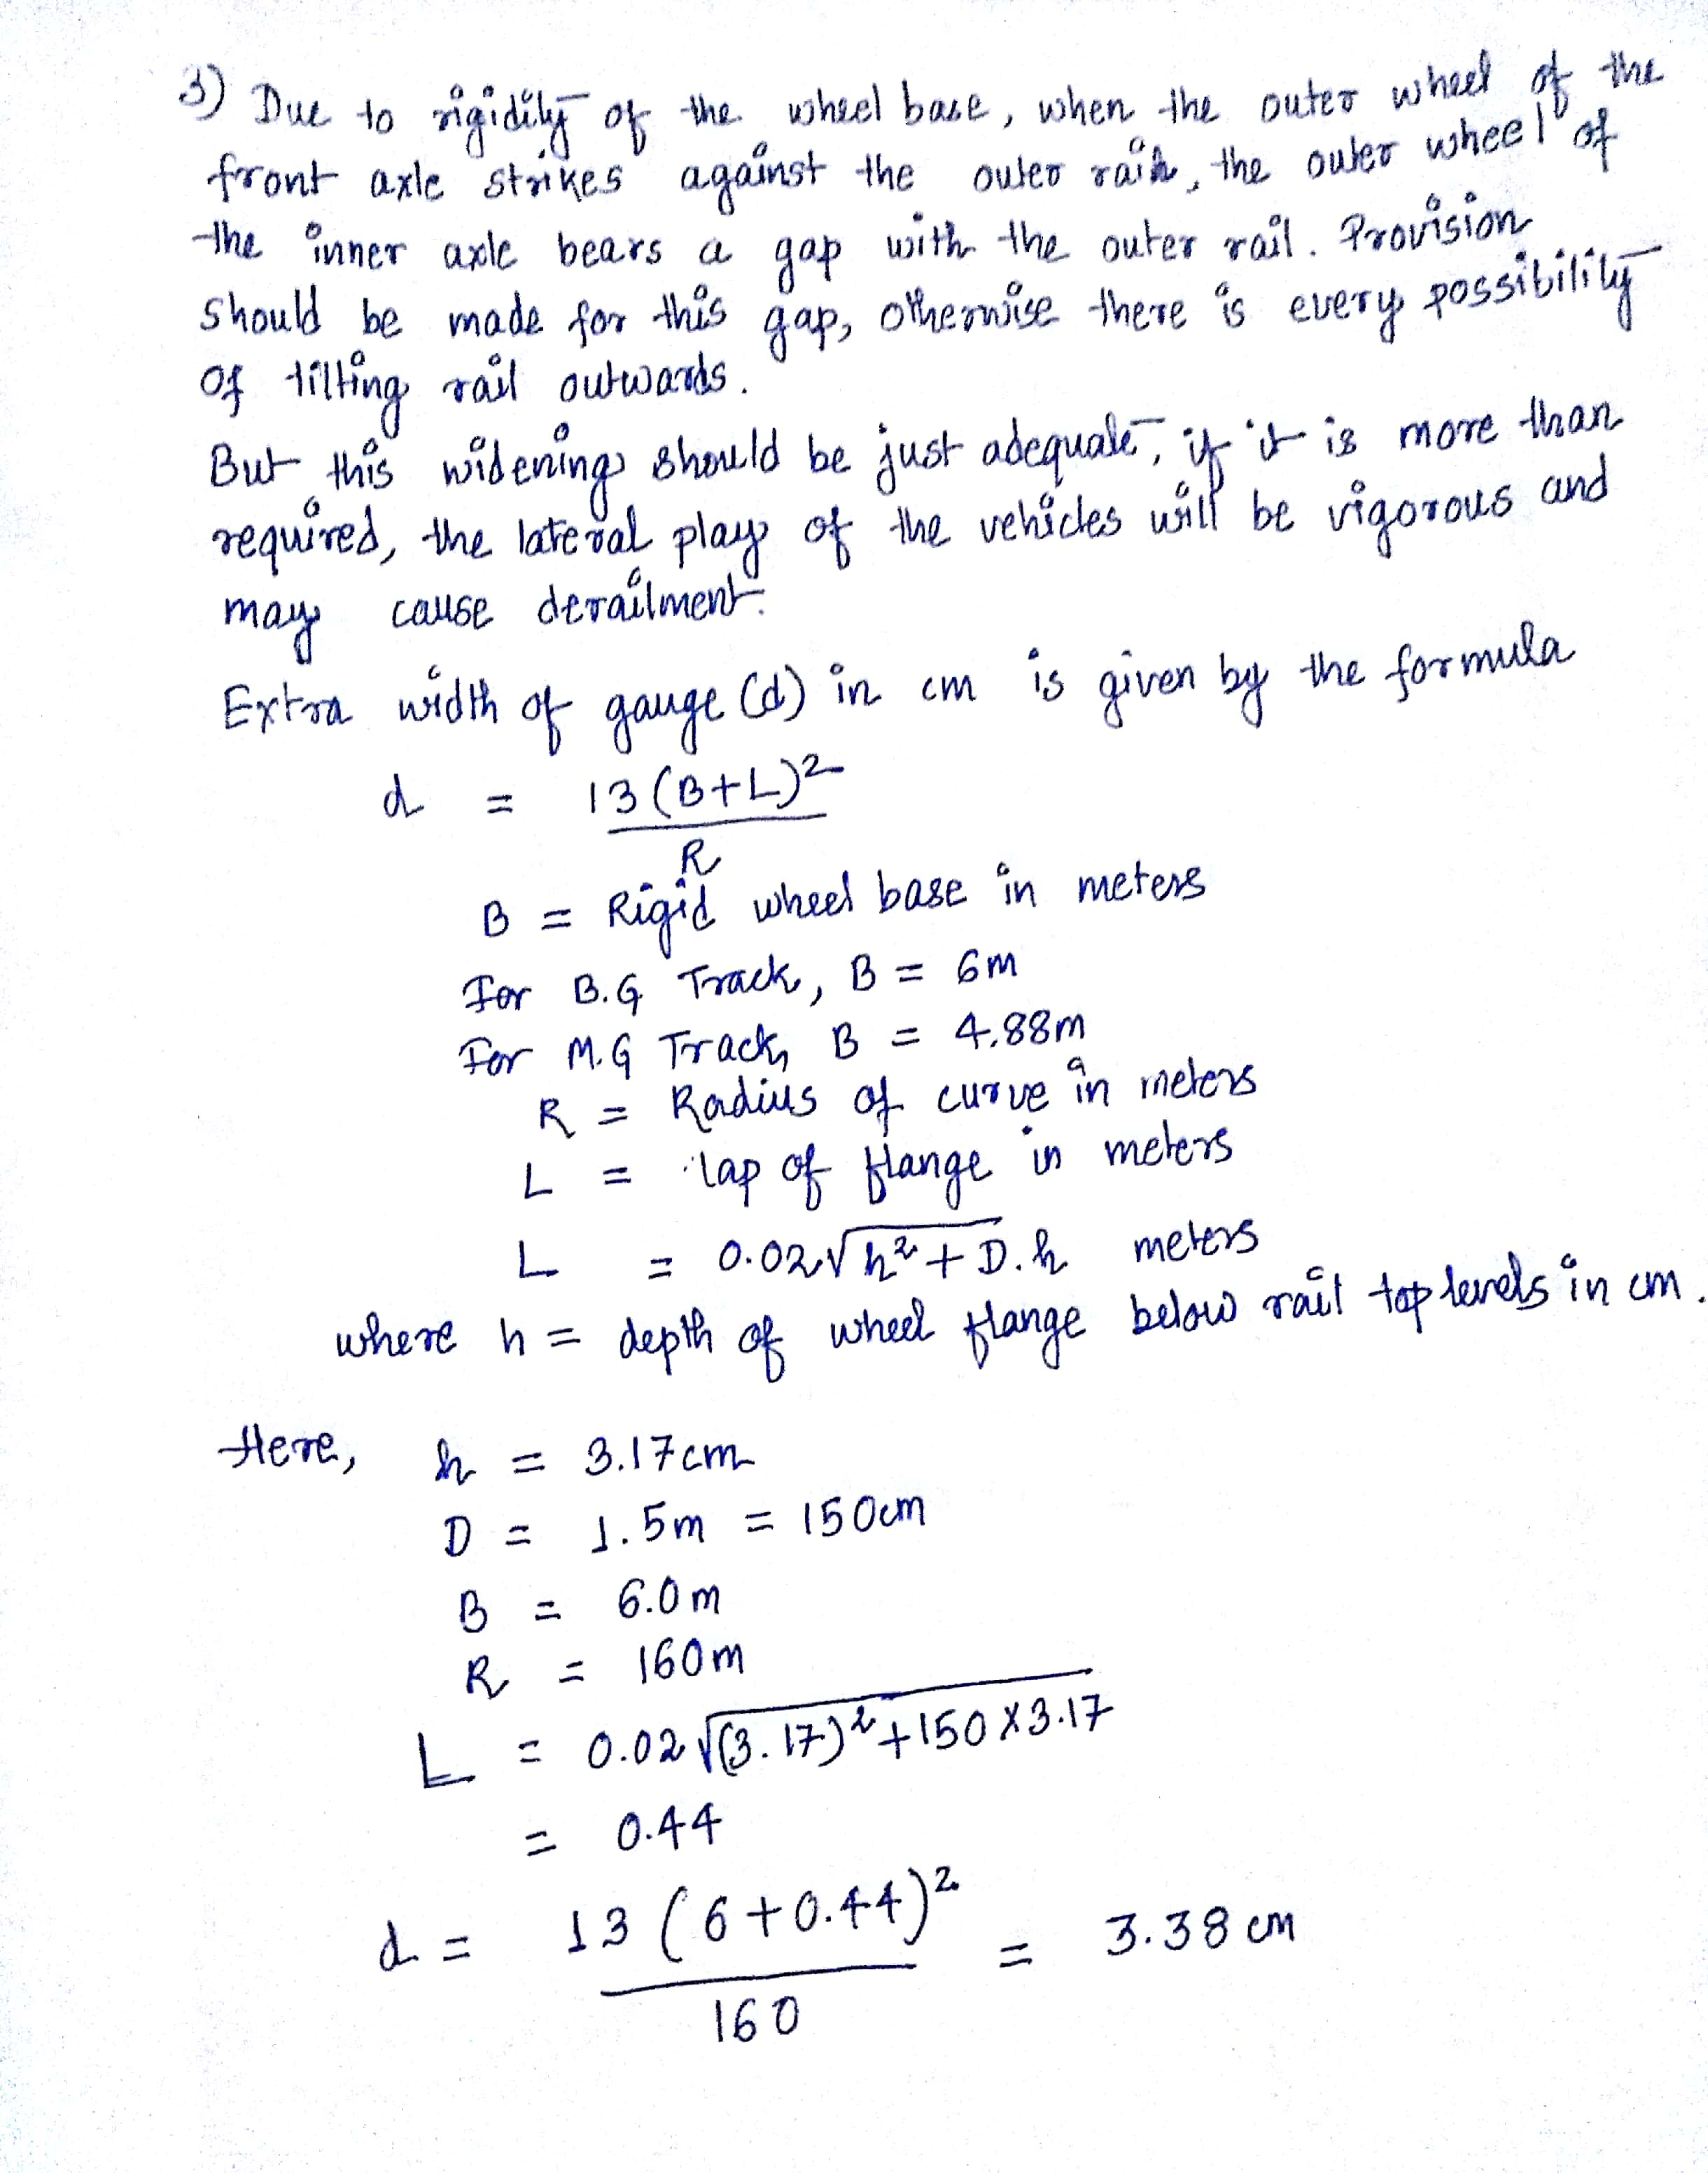 3) Due to rigidity of the wheel base, when the outer wheel of the
front axle strikes against the outer rail, the outer wheel of
the inner axle bears a gap with the outer rail. Provision
should be made for this gap, otherwise there is every possibility
of tilting rail outwards.
But this widening should be just adequate, if it is more than
required, the lateral play of the vehicles will be vigorous and
may cause derailment.
Extra width of gauge (d) in cm is given by the formula
d = 13 (B+L)²
R
B = Rigid wheel base in meters
For B.G Track, B = 6m
For M.G Track, B = 4.88m
R = Radius of curve in meters
L = lap of flange in meters
L = 0.02√h² + D.h meters
where h = depth of wheel flange below rail top levels in cm.
Here, h = 3.17cm
D = 1.5m = 150cm
B = 6.0m
R = 160m
L = 0.02 √(3.17)² + 150 X 3.17
= 0.44
d = 13 (6+0.44)² = 3.38 cm
160